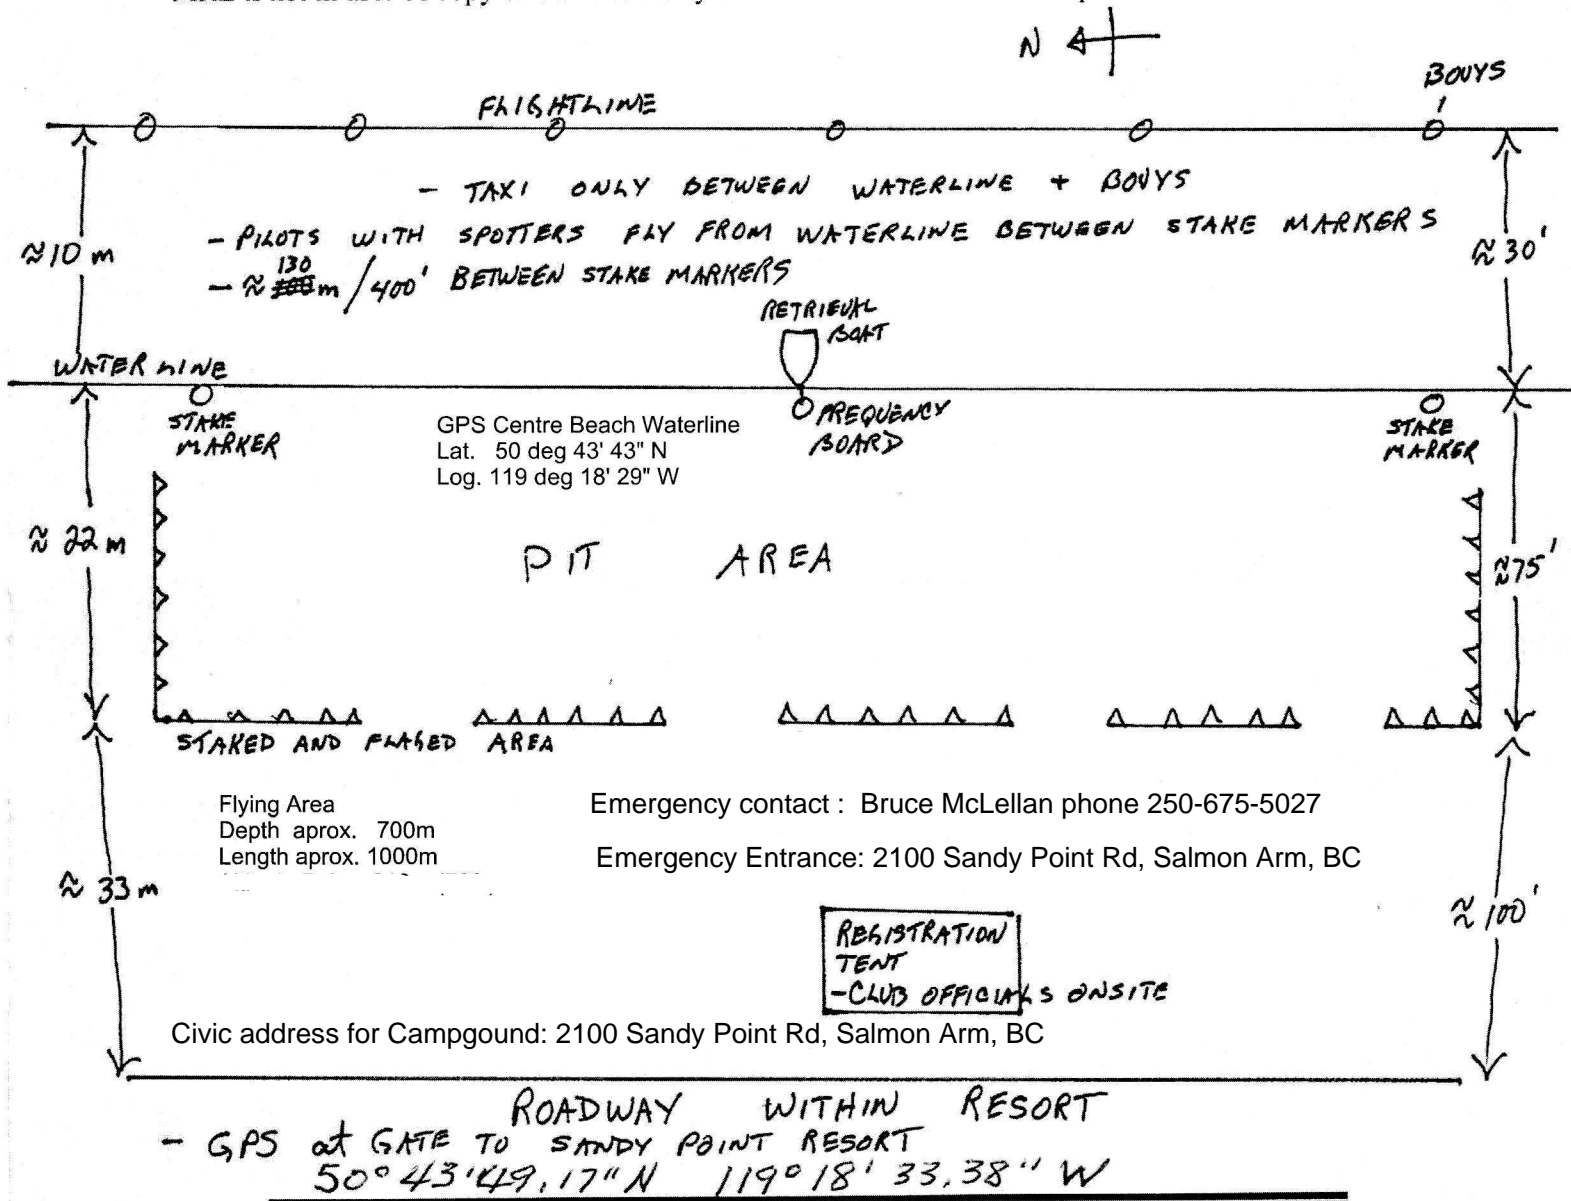 N
BOUYS
FLIGHTLINE
- TAXI ONLY BETWEEN WATERLINE + BOUYS
- PILOTS WITH SPOTTERS FLY FROM WATERLINE BETWEEN STAKE MARKERS
≈10 m
≈30'
130
- ≈ m/400' BETWEEN STAKE MARKERS
RETRIEVAL
BOAT
WATER LINE
STAKE
MARKER
GPS Centre Beach Waterline
Lat. 50 deg 43' 43" N
Log. 119 deg 18' 29" W
FREQUENCY
BOARD
STAKE
MARKER
≈ 22 m
PIT AREA
≈75'
STAKED AND FLAGED AREA
Flying Area
Depth aprox. 700m
Length aprox. 1000m
Emergency contact : Bruce McLellan phone 250-675-5027
Emergency Entrance: 2100 Sandy Point Rd, Salmon Arm, BC
≈ 33 m
≈ 100'
REGISTRATION
TENT
-CLUB OFFICIALS ONSITE
Civic address for Campgound: 2100 Sandy Point Rd, Salmon Arm, BC
ROADWAY WITHIN RESORT
- GPS at GATE TO SANDY POINT RESORT
50° 43' 49.17" N 119° 18' 33.38" W